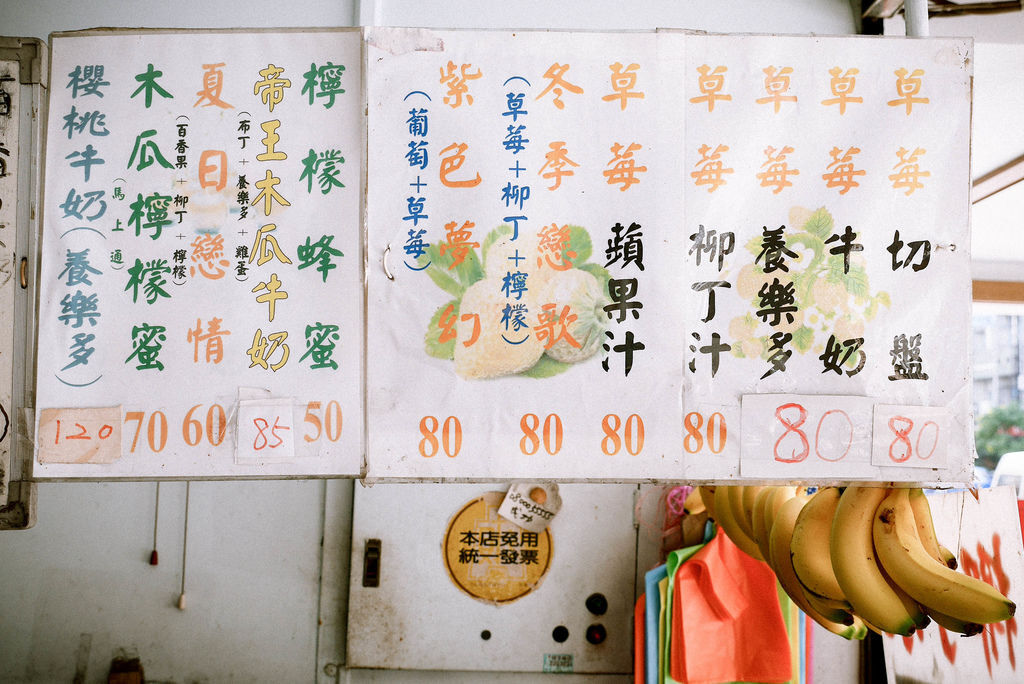 草莓切盤
80
草莓牛奶
80
草莓養樂多
草莓柳丁汁
80
草莓蘋果汁
80
冬季戀歌
(草莓+柳丁+檸檬)
80
紫色夢幻
(葡萄+草莓)
80
檸檬蜂蜜
50
帝王木瓜牛奶
(布丁+養樂多+雞蛋)
85
夏日戀情
(百香果+柳丁+檸檬)
60
木瓜檸檬蜜
(馬上通)
70
櫻桃牛奶(養樂多)
120
本店免用
統一發票